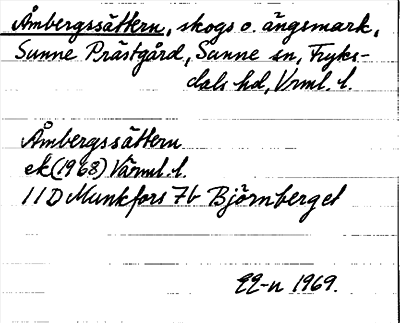 Åmbergssättern, skogs o. ängsmark,
Sunne Prästgård, Sunne sn, Fryks-
dals hd, Vrml. l.
Åmbergssättern
ek (1968) Värml. l.
11D Munkfors 7b Björnberget
EE-n 1969.